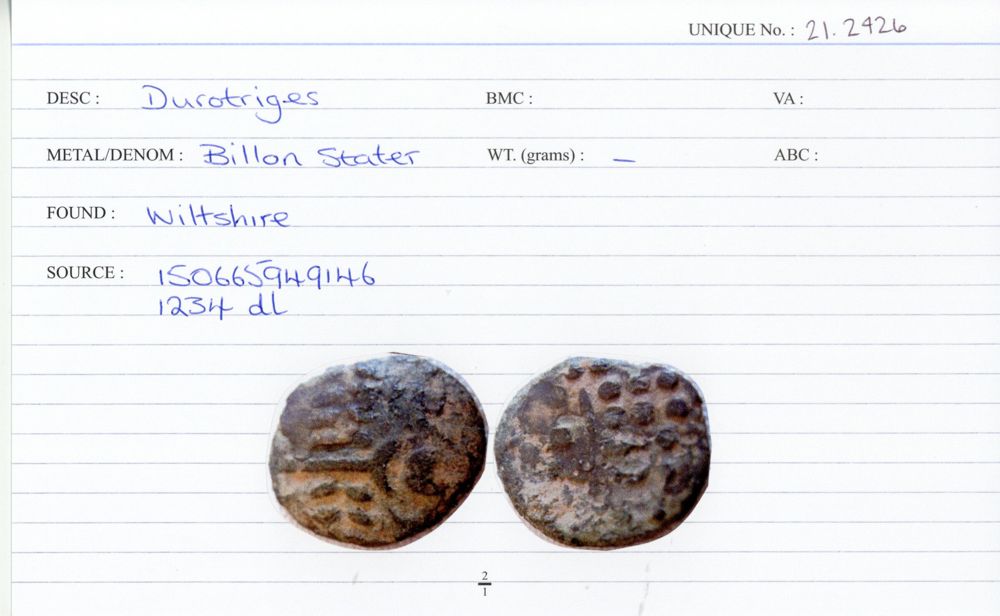 UNIQUE No. : 21.2426
DESC : Durotriges BMC : VA :
METAL/DENOM : Billon Stater WT. (grams) : – ABC :
FOUND : Wiltshire
SOURCE : 150665949146
1234 dl
2
1